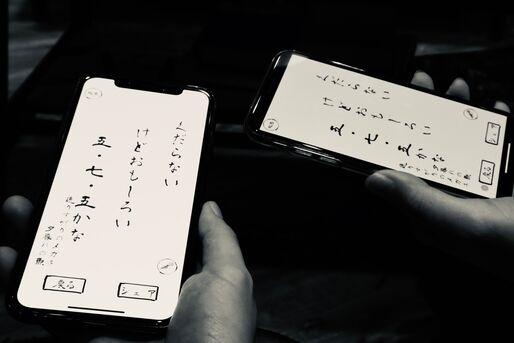 くだらない
けどおもしろい
五・七・五かな
戻る
シェア
くだらない
けどおもしろい
五・七・五かな
シェア
戻る